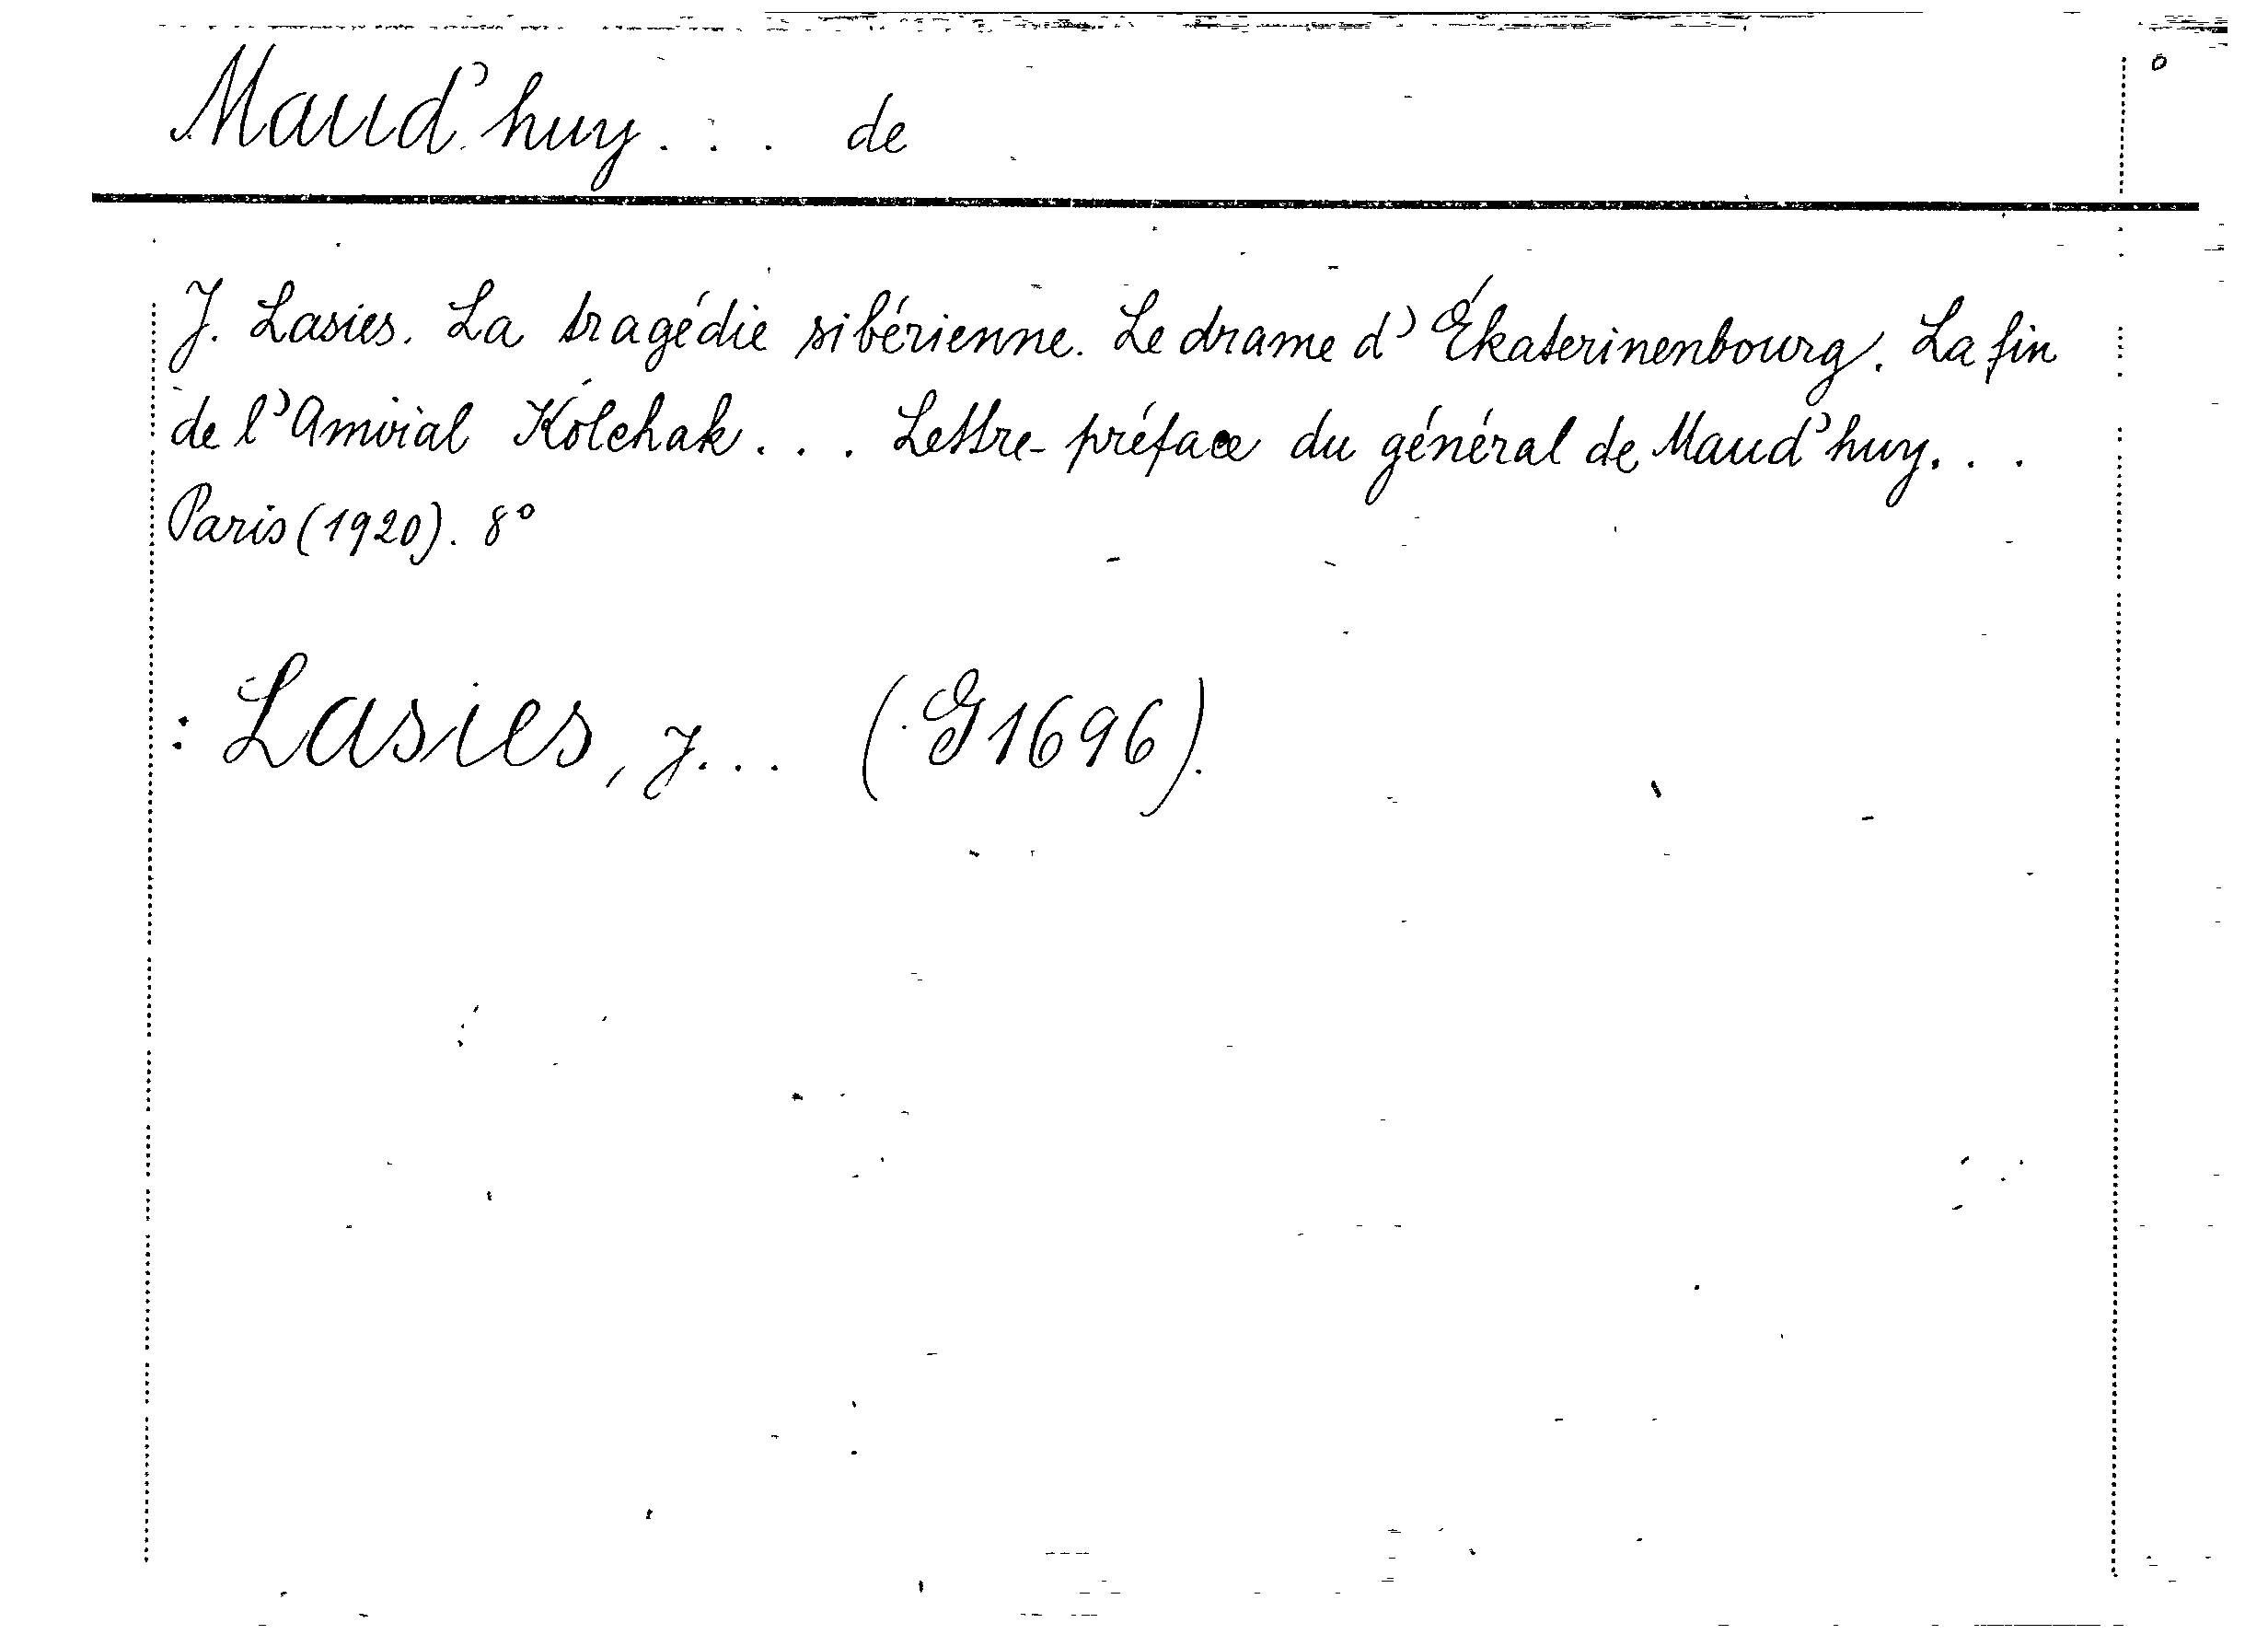 Maud'huy... de
J. Lasies. La tragédie sibérienne. Le drame d'Ékaterinenbourg. La fin
de l'Amiral Kolchak... Lettre-préface du général de Maud'huy...
Paris (1920). 8°
: Lasies, J... (G1696).